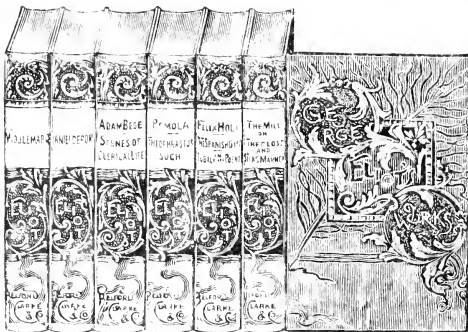 MIDDLEMARCH
ELIOT
BELFORD
CLARKE
& CO
DANIEL DERONDA
ELIOT
BELFORD
CLARKE
& CO
ADAM BEDE
SCENES OF
CLERICAL LIFE
ELIOT
BELFORD
CLARKE
& CO
ROMOLA
THEOPHRASTUS
SUCH
ELIOT
BELFORD
CLARKE
& CO
FELIX HOLT
SPANISH GYPSY
JUBAL AND POEMS
ELIOT
BELFORD
CLARKE
& CO
THE MILL
ON
THE FLOSS
AND
SILAS MARNER
ELIOT
BELFORD
CLARKE
& CO
GEORGE
ELIOT'S
WORKS